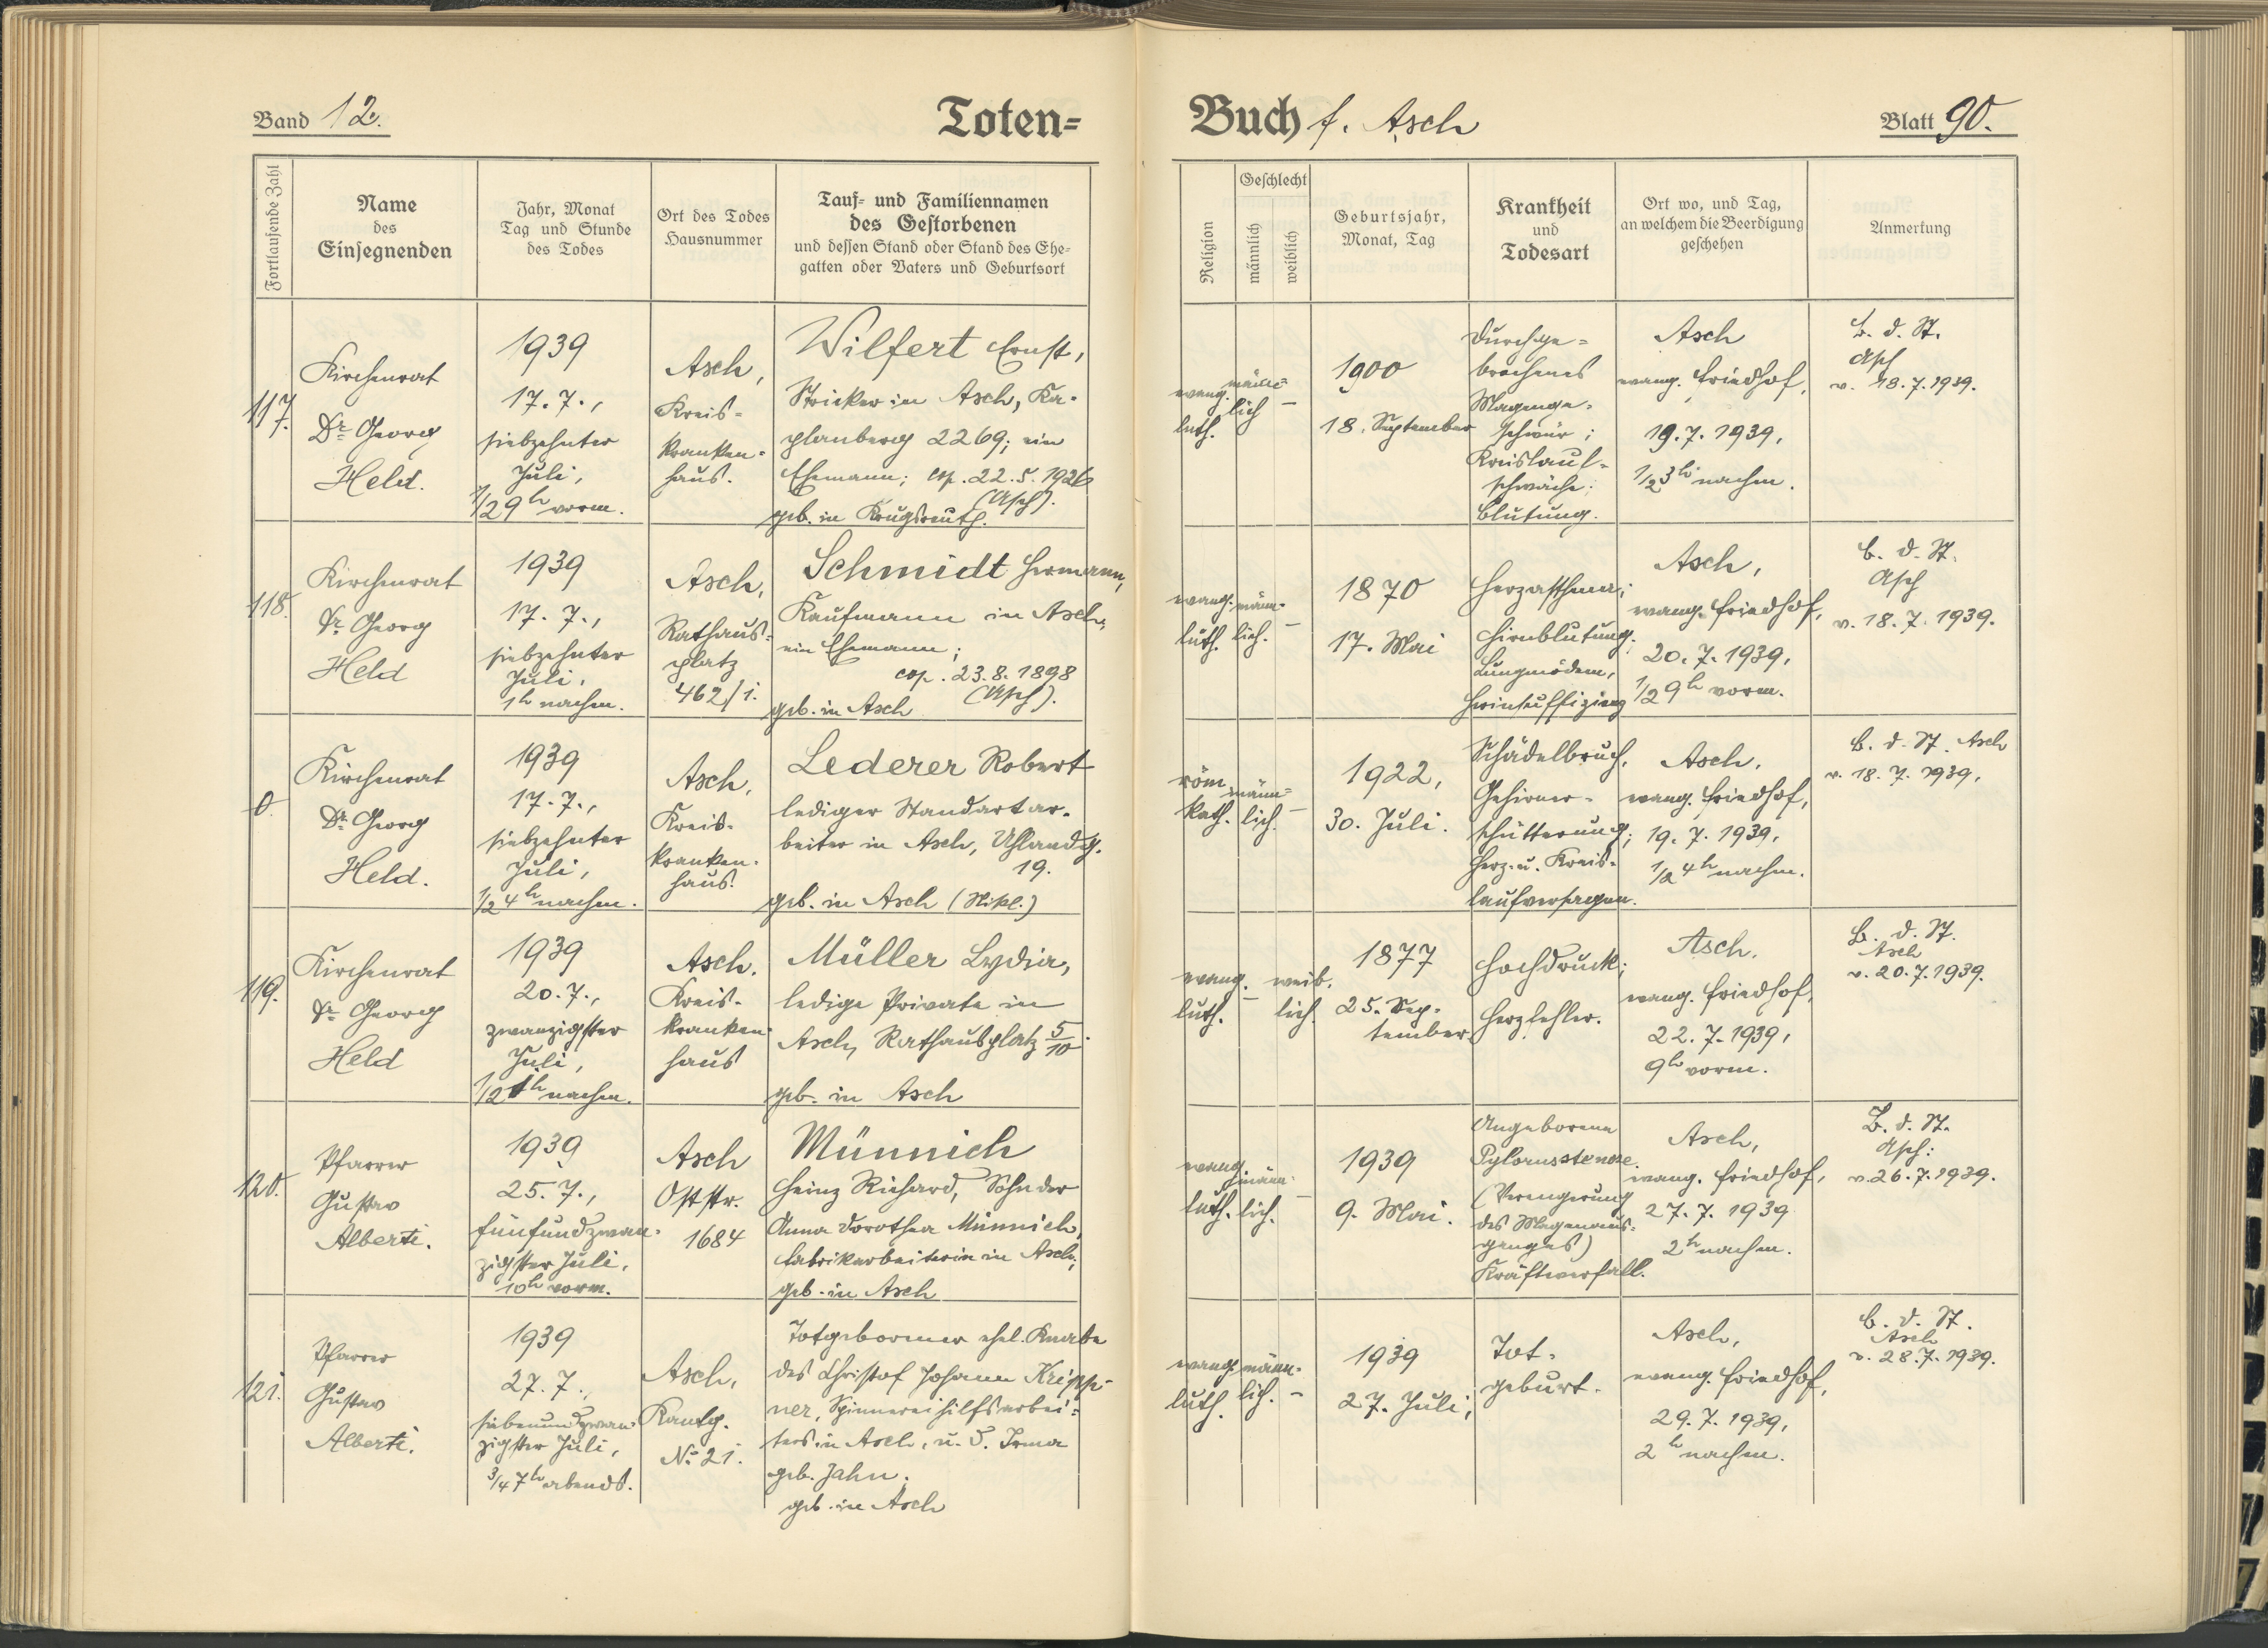 Band 12.
Toten=
Buch f. Asch
Blatt 90.
Fortlaufende Zahl
Name
des
Einsegnenden
Jahr, Monat
Tag und Stunde
des Todes
Ort des Todes
Hausnummer
Tauf= und Familiennamen
des Gestorbenen
und dessen Stand oder Stand des Ehe=
gatten oder Vaters und Geburtsort
Religion
Geschlecht
männlich
weiblich
Geburtsjahr,
Monat, Tag
Krankheit
und
Todesart
Ort wo, und Tag,
an welchem die Beerdigung
geschehen
Anmerkung
117.
Kirchenrat
Dr Georg
Held.
1939
17. 7.,
siebzehnter
Juli,
1/2 9h vorm.
Asch,
Kreis=
kranken=
haus.
Wilfert Ernst,
Stricker in Asch, Ka=
planberg 2269; ein
Ehemann; cop. 22. 5. 1926
(Asch).
geb. in Krugsreuth.
evang.
luth.
männ=
lich
–
1900
18. September
Durchge=
brochenes
Magenge=
schwür;
Kreislauf=
schwäche;
Blutung.
Asch
evang. Friedhof,
19. 7. 1939,
1/2 3h nachm.
B. d. St.
Asch
v. 18. 7. 1939.
118.
Kirchenrat
Dr Georg
Held
1939
17. 7.,
siebzehnter
Juli,
1h nachm.
Asch,
Rathaus=
platz
462/1.
Schmidt Hermann,
Kaufmann in Asch,
ein Ehemann;
cop. 23. 8. 1898
(Asch).
geb. in Asch
evang.
luth.
männ=
lich.
–
1870
17. Mai
Herzasthma;
Hirnblutung;
Lungenödem,
Herzinsuffizienz
Asch,
evang. Friedhof,
20. 7. 1939,
1/2 9h vorm.
B. d. St.
Asch
v. 18. 7. 1939.
0.
Kirchenrat
Dr Georg
Held.
1939
17. 7.,
siebzehnter
Juli,
1/2 4h nachm.
Asch,
Kreis=
kranken=
haus.
Lederer Robert
lediger Standartar=
beiter in Asch, Uhlandg.
19.
geb. in Asch (Nikl.)
röm.
kath.
männ=
lich.
–
1922,
30. Juli.
Schädelbruch,
Gehirner=
schütterung;
Herz- u. Kreis=
laufversagen.
Asch,
evang. Friedhof,
19. 7. 1939,
1/2 4h nachm.
B. d. St. Asch
v. 18. 7. 1939.
119.
Kirchenrat
Dr Georg
Held
1939
20. 7.,
zwanzigster
Juli,
1/2 1h nachm.
Asch.
Kreis=
kranken=
haus
Müller Lydia,
ledige Private in
Asch, Rathausplatz 5/10.
geb. in Asch
evang.
luth.
–
weib.
lich.
1877
25. Sep=
tember
Hochdruck;
Herzfehler.
Asch.
evang. Friedhof,
22. 7. 1939,
9h vorm.
B. d. St.
Asch
v. 20. 7. 1939.
120.
Pfarrer
Gustav
Alberti.
1939
25. 7.,
fünfundzwan=
zigster Juli,
10h vorm.
Asch
Oststr.
1684
Münnich
Heinz Richard, Sohn der
Anna Dorothea Münnich,
Fabrikarbeiterin in Asch;
geb. in Asch
evang.
luth.
männ=
lich.
–
1939
9. Mai.
Angeborene
Pylorusstenose.
(Verengerung
des Magenaus=
ganges)
Kräfteverfall.
Asch,
evang. Friedhof,
27. 7. 1939
2h nachm.
B. d. St.
Asch:
v. 26. 7. 1939.
121.
Pfarrer
Gustav
Alberti.
1939
27. 7.,
siebenundzwan=
zigster Juli,
3/4 7h abends.
Asch,
Kantg.
No 21.
Totgeborener ehel. Knabe
des Christof Johann Kripp=
ner, Spinnereihilfsarbei=
ters in Asch, u. d. Irma
geb. Jahn.
geb. in Asch
evang.
luth.
männ=
lich.
–
1939
27. Juli;
Tot=
geburt.
Asch,
evang. Friedhof,
29. 7. 1939,
2h nachm.
B. d. St.
Asch
v. 28. 7. 1939.